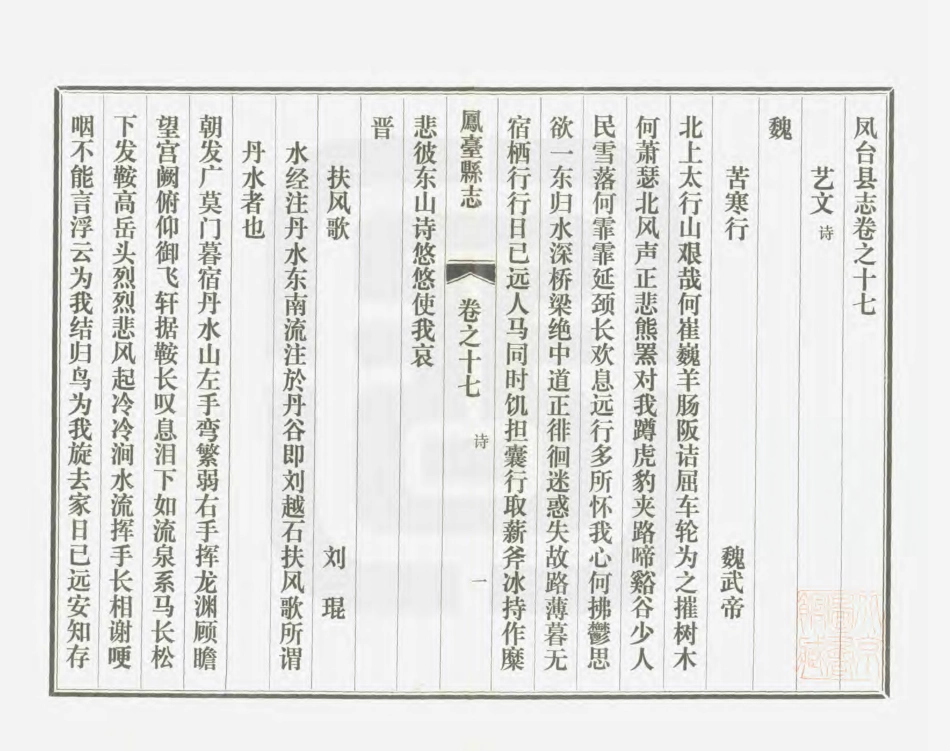 凤台县志卷之十七
艺文 诗
魏
苦寒行 魏武帝
北上太行山艰哉何崔巍羊肠阪诘屈车轮为之摧树木
何萧瑟北风声正悲熊罴对我蹲虎豹夹路啼谿谷少人
民雪落何霏霏延颈长欢息远行多所怀我心何拂鬱思
欲一东归水深桥梁绝中道正徘徊迷惑失故路薄暮无
宿栖行行日已远人马同时饥担囊行取薪斧冰持作糜
鳳臺縣志 卷之十七 诗 一
悲彼东山诗悠悠使我哀
晋
扶风歌 刘琨
水经注丹水东南流注於丹谷即刘越石扶风歌所谓
丹水者也
朝发广莫门暮宿丹水山左手弯繁弱右手挥龙渊顾瞻
望宫阙俯仰御飞轩据鞍长叹息泪下如流泉系马长松
下发鞍高岳头烈烈悲风起冷冷涧水流挥手长相谢哽
咽不能言浮云为我结归鸟为我旋去家日已远安知存